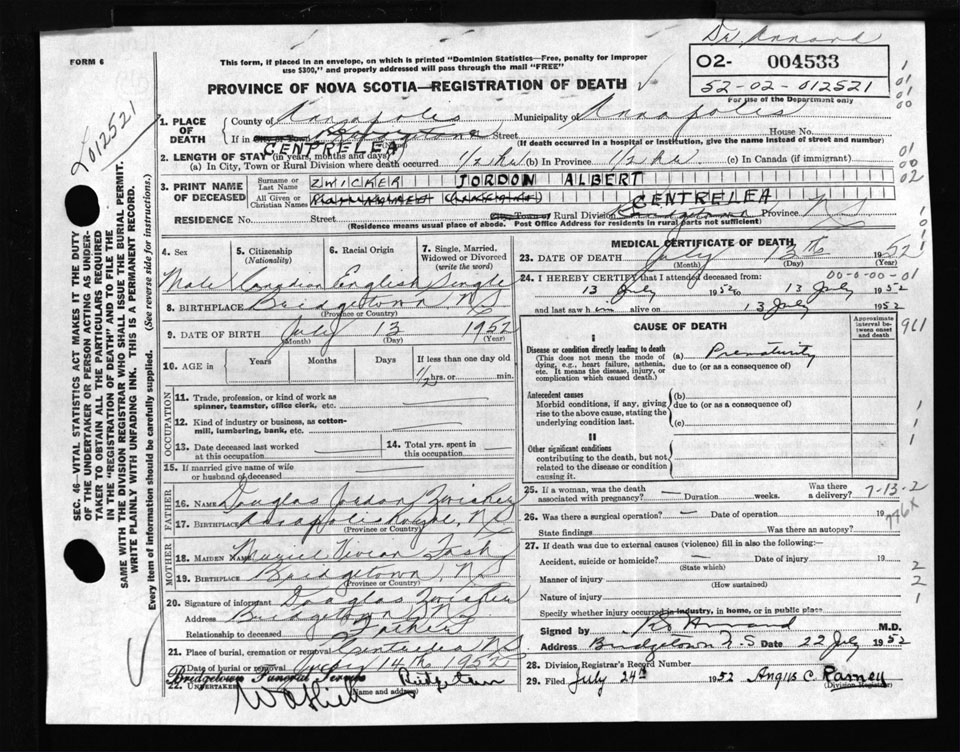 Dr Annand
FORM 6
This form, if placed in an envelope, on which is printed "Dominion Statistics—Free, penalty for improper
use $300," and properly addressed will pass through the mail "FREE"
O2- 004533
52-02-012521
For use of the Department only
PROVINCE OF NOVA SCOTIA—REGISTRATION OF DEATH
012521
1. PLACE OF DEATH
County of Annapolis Municipality of Annapolis
If in Street House No.
(If death occurred in a hospital or institution, give its name instead of street and number)
CENTRELEA
2. LENGTH OF STAY (in years, months and days)
(a) In City, Town or Rural Division where death occurred 1/2 hr (b) In Province 1/2 hr (c) In Canada (if immigrant)
3. PRINT NAME OF DECEASED
Surname or Last Name ZWICKER JORDON ALBERT
All Given or Christian Names
CENTRELEA
RESIDENCE No. Street City, Town or Rural Division Bridgetown Province NS
(Residence means usual place of abode. Post Office Address for residents in rural parts not sufficient)
4. Sex Male
5. Citizenship (Nationality) Canadian
6. Racial Origin English
7. Single, Married, Widowed or Divorced (write the word) Single
8. BIRTHPLACE Bridgetown NS
(Province or Country)
9. DATE OF BIRTH July 13 1952
(Month) (Day) (Year)
10. AGE in Years Months Days If less than one day old
1/2 hrs. or min.
OCCUPATION
11. Trade, profession, or kind of work as
spinner, teamster, office clerk, etc.
12. Kind of industry or business, as cotton-
mill, lumbering, bank, etc.
13. Date deceased last worked
at this occupation
14. Total yrs. spent in
this occupation
15. If married give name of wife
or husband of deceased
FATHER
16. Name Douglas Jordan Zwicker
17. Birthplace NS
(Province or Country)
MOTHER
18. MAIDEN NAME Vivian
19. BIRTHPLACE Bridgetown, NS
(Province or Country)
20. Signature of informant Douglas Zwicker
Address Bridgetown NS
Relationship to deceased Father
21. Place of burial, cremation or removal Centrelea NS
Date of burial or removal July 14th 1952
Bridgetown Funeral Service Bridgetown
22. UNDERTAKER
(Name and address)
MEDICAL CERTIFICATE OF DEATH
23. DATE OF DEATH July 13th 1952
(Month) (Day) (Year)
24. I HEREBY CERTIFY that I attended deceased from 00-0-00-01
13 July 1952 to 13 July 1952
and last saw h im alive on 13 July 1952
CAUSE OF DEATH
Approximate interval between onset and death
I
Disease or condition directly leading to death
(This does not mean the mode of
dying, e.g., heart failure, asthenia,
etc. It means the disease, injury, or
complication which caused death.)
(a) Prematurity
due to (or as a consequence of)
Antecedent causes
Morbid conditions, if any, giving
rise to the above cause, stating the
underlying condition last.
(b)
due to (or as a consequence of)
(c)
II
Other significant conditions
contributing to the death, but not
related to the disease or condition
causing it.
25. If a woman, was the death
associated with pregnancy? — Duration weeks. Was there a delivery? 7-13-2
26. Was there a surgical operation? — Date of operation 19
776x
State findings Was there an autopsy?
27. If death was due to external causes (violence) fill in also the following:—
Accident, suicide or homicide? — Date of injury 19
(State which)
Manner of injury
(How sustained)
Nature of injury
Specify whether injury occurred in industry, in home, or in public place
Signed by Annand M.D.
Address Bridgetown N.S Date 22 July 1952
28. Division Registrar's Record Number
29. Filed July 24th 1952 Angus C. Ramey
(Division Registrar)
SEC. 46— VITAL STATISTICS ACT MAKES IT THE DUTY
OF THE UNDERTAKER OR PERSON ACTING AS UNDER-
TAKER TO OBTAIN ALL THE PARTICULARS REQUIRED
IN THE "REGISTRATION OF DEATH" AND TO FILE THE
SAME WITH THE DIVISION REGISTRAR WHO SHALL ISSUE THE BURIAL PERMIT.
WRITE PLAINLY WITH UNFADING INK. THIS IS A PERMANENT RECORD.
Every item of information should be carefully supplied. (See reverse side for instructions.)